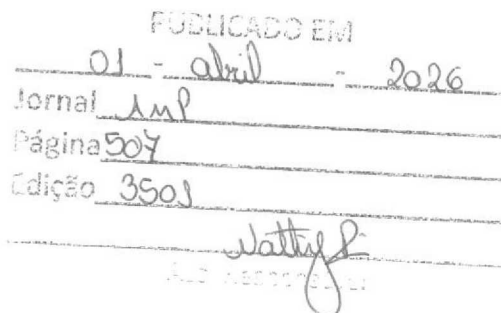 PUBLICADO EM
01 - abril - 2026
Jornal AMP
Página 507
Edição 3501